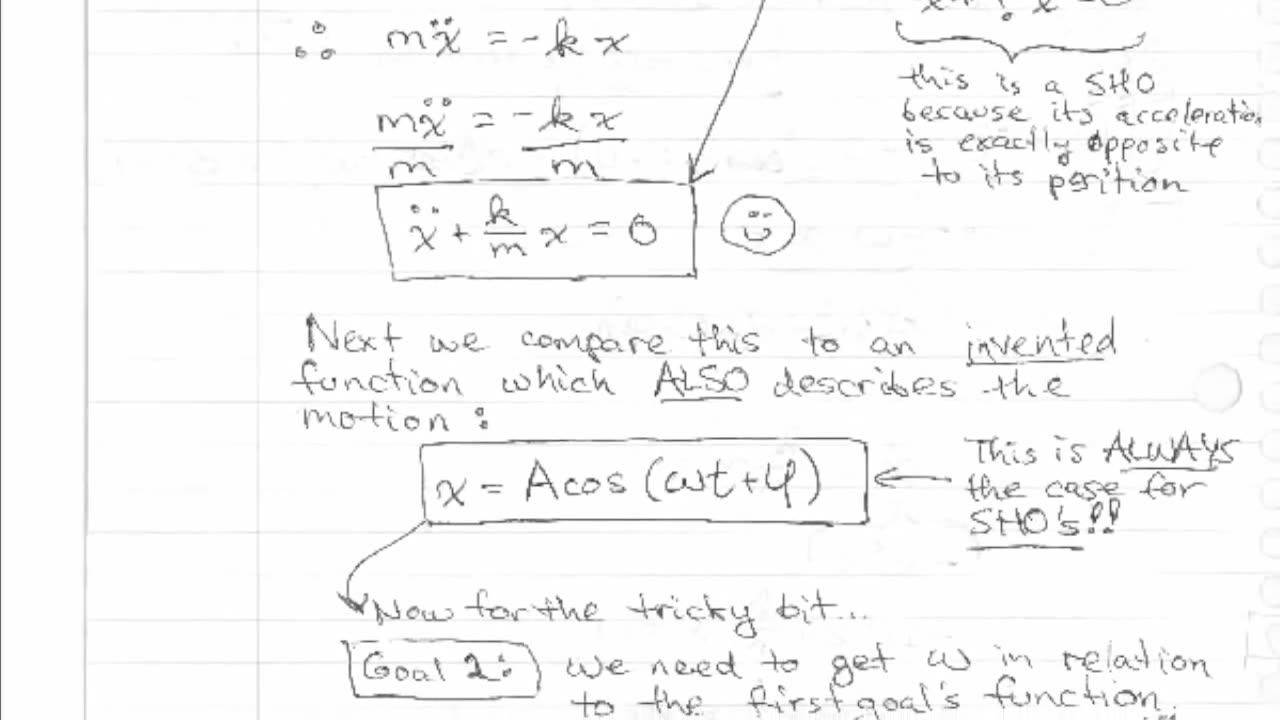 ∴ mẍ = -kx
this is a SHO
because its acceleration
is exactly opposite
to its position
mẍ = -kx
m m
ẍ + k/m x = 0
Next we compare this to an invented
function which ALSO describes the
motion:
x = Acos (ωt+φ)
This is ALWAYS
the case for
SHO's!!
Now for the tricky bit...
Goal 2: we need to get ω in relation
to the first goal's function